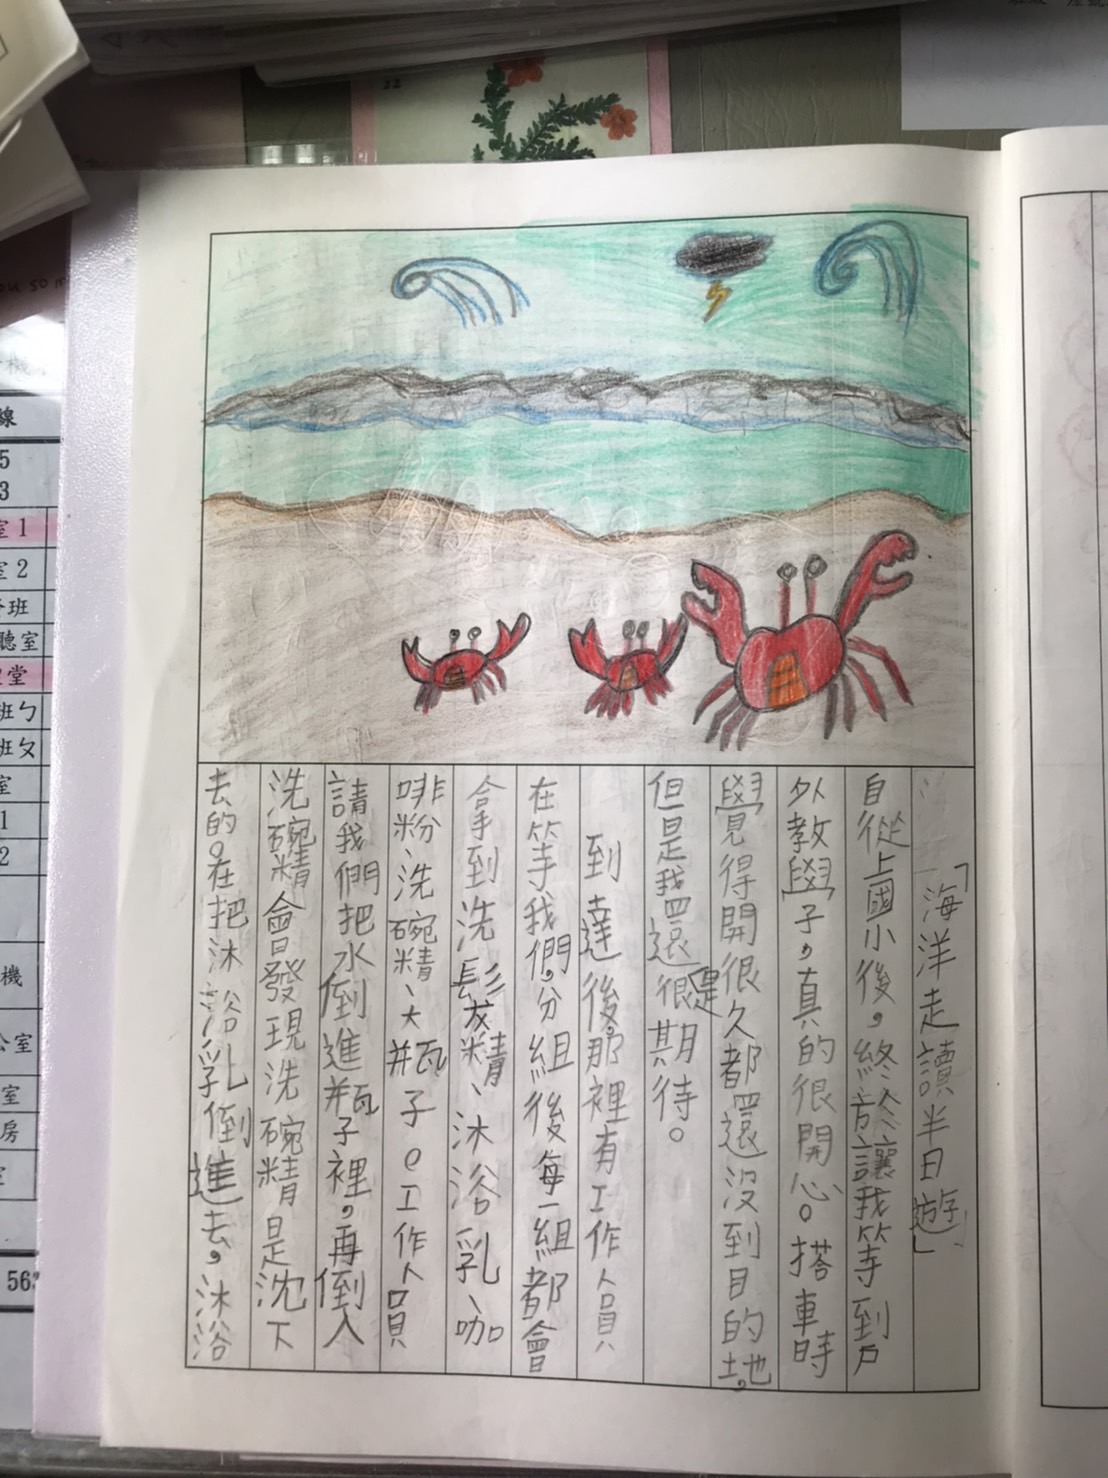 「海洋走讀半日遊」
自從上國小後，終於讓我等到戶
外教學了，真的很開心。搭車時
覺得開很久都還沒到目的地，
但是我還是很期待。
到達後，那裡有工作人員
在等我們，分組後每一組都會
拿到洗髮精、沐浴乳、咖
啡粉、洗碗精、大瓶子。工作人員
請我們把水倒進瓶子裡，再倒入
洗碗精會發現洗碗精是沈下
去的。在把沐浴乳倒進去，沐浴
線
5
3
室1
室2
班
聽室
堂
班ㄅ
班ㄆ
室
1
2
機
公室
室
房
563
32